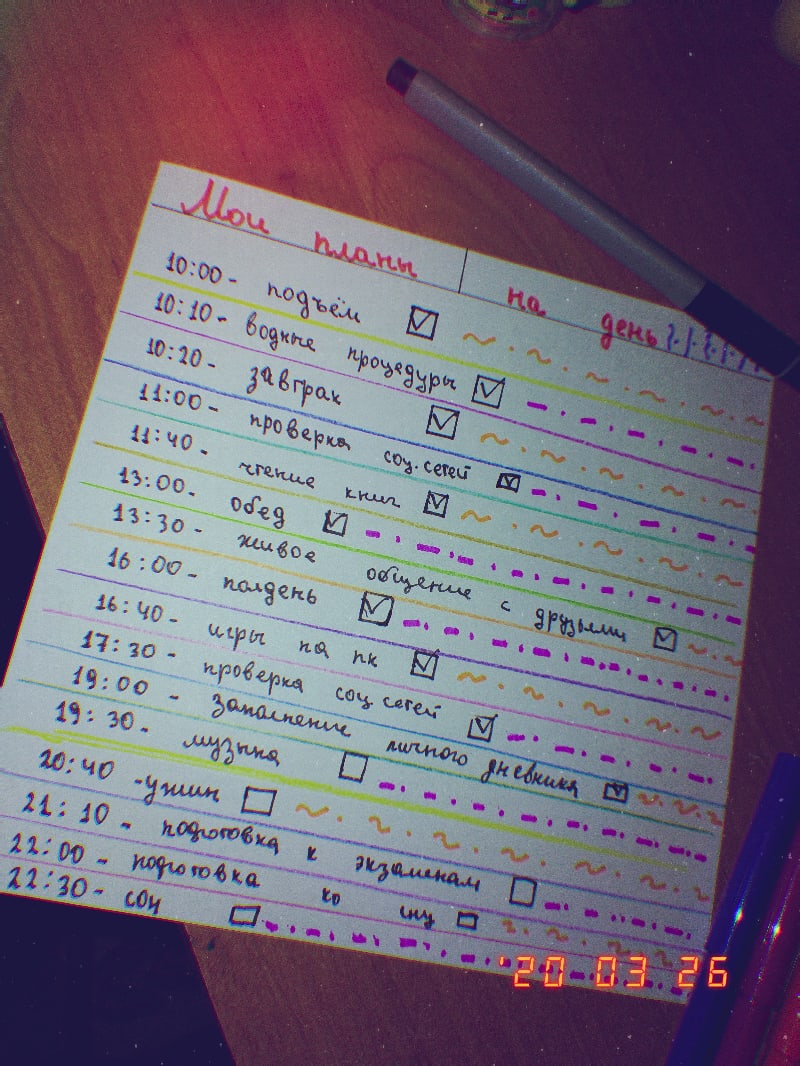 Мои планы на день
10:00- подъём
10:10- водные процедуры
10:20- завтрак
11:00- проверка соц. сетей
11:40- чтение книг
13:00- обед
13:30- живое общение с друзьями
16:00- полдень
16:40- игры на пк
17:30- проверка соц. сетей
19:00 - заполнение личного дневника
19:30- музыка
20:40 -ужин
21:10- подготовка к экзаменам
22:00- подготовка ко сну
22:30- сон
'20 03 26